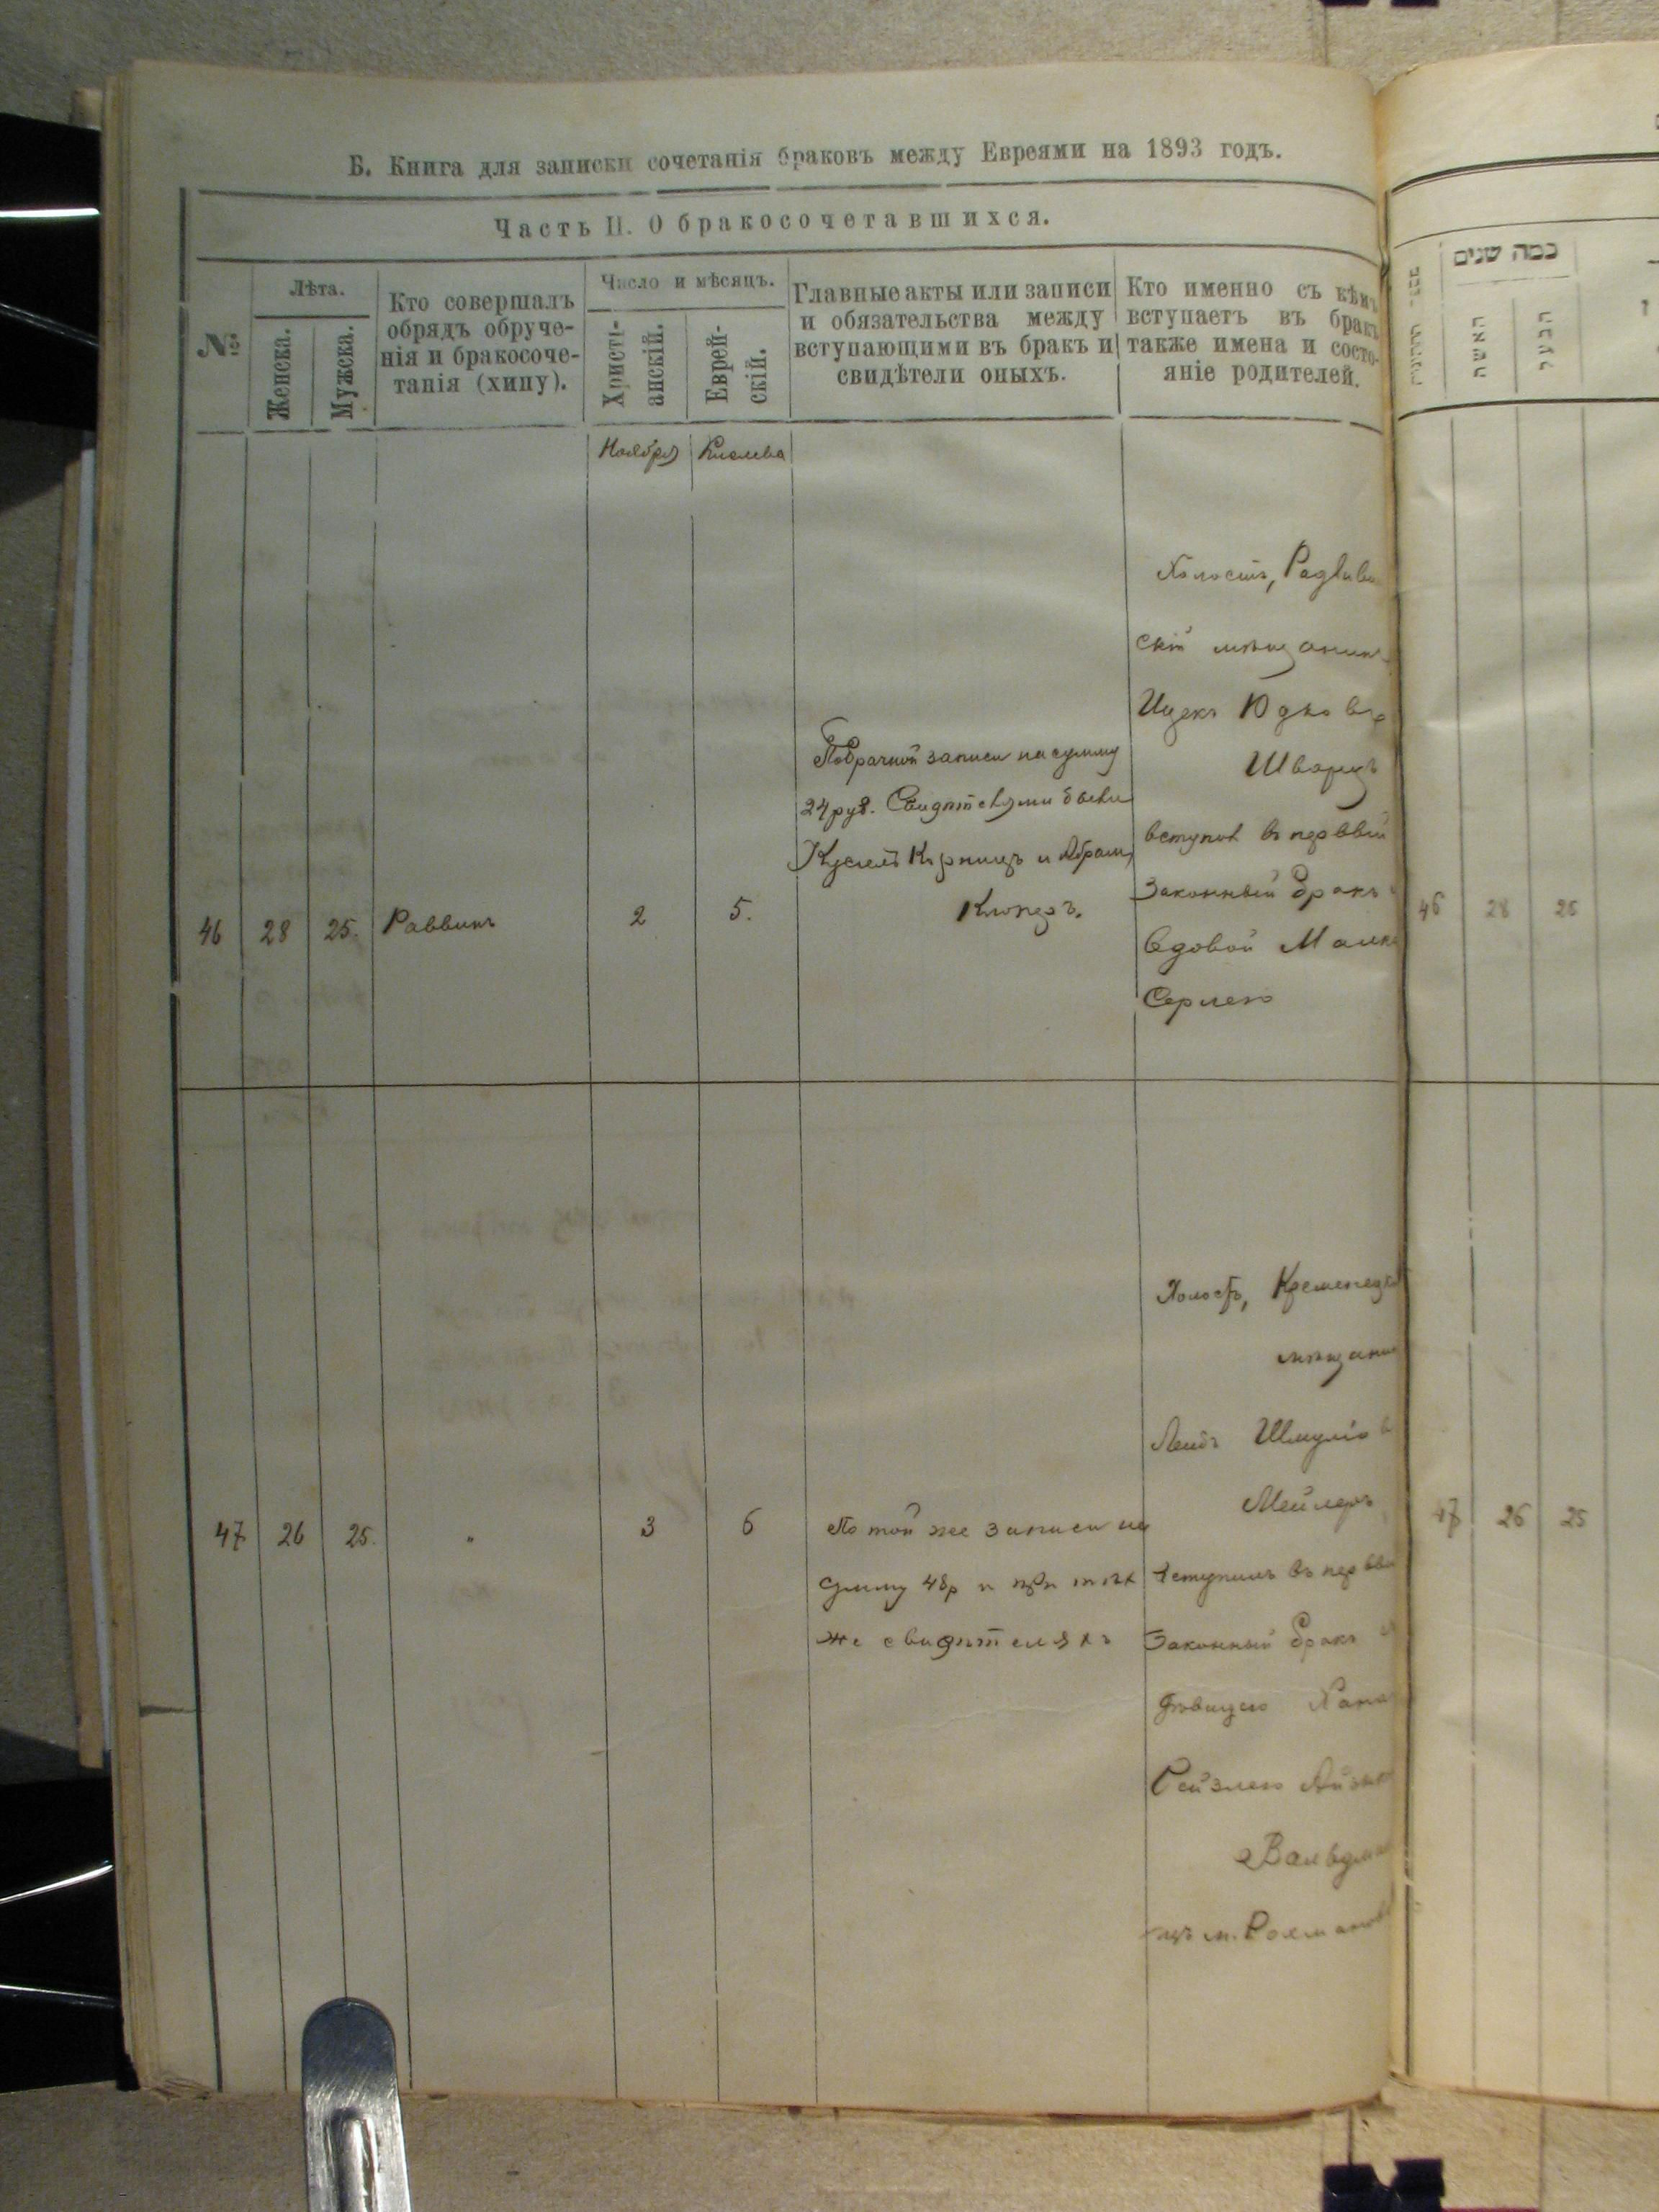 Б. Книга для записки сочетанія браковъ между Евреями на 1893 годъ.
Часть II. О бракосочетавшихся.
№
Лѣта.
Женска.
Мужска.
Кто совершалъ
обрядъ обруче-
нія и бракосоче-
танія (хипу).
Число и мѣсяцъ.
Христі-
анскій.
Еврей-
скій.
Главные акты или записи
и обязательства между
вступающими въ бракъ и
свидѣтели оныхъ.
Кто именно съ кѣмъ
вступаетъ въ бракъ
также имена и состо-
яніе родителей.
כמה שנים
האשה
הבעל
Ноября
Кислева
46
28
25.
Раввинъ
2
5.
Побрачной записи на сумму
24 руб. Свидѣтелями были
и Абрам
Клопезъ.
Холостъ, Радзиви
скій мѣщанинъ
Ицекъ
Шварцъ
вступил въ первый
Законный бракъ
вдовой
Серлею
46
28
25
47
26
25.
"
3
6
По той же записи на
сумму 48р и при тѣх
же свидѣтеляхъ
Холостъ, Кременецкі
мѣщани
Лейбъ
Мейлеръ
вступилъ въ первы
Законный бракъ
дѣвицею
Рейзлею
изъ м. Рахманов
47
26
25